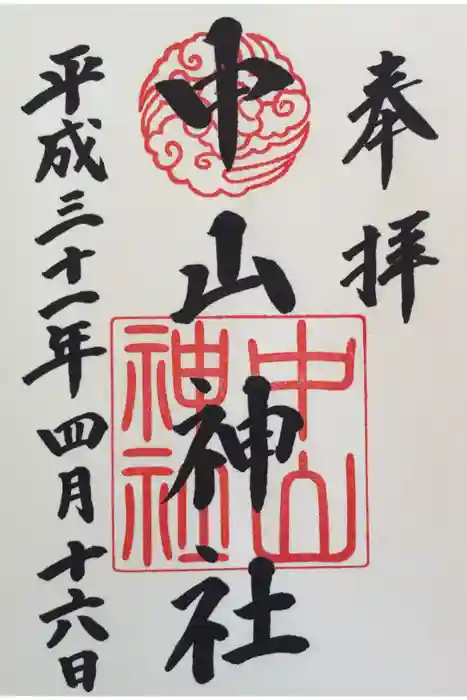 奉拝
中山神社
平成三十一年四月十六日
中山
神社